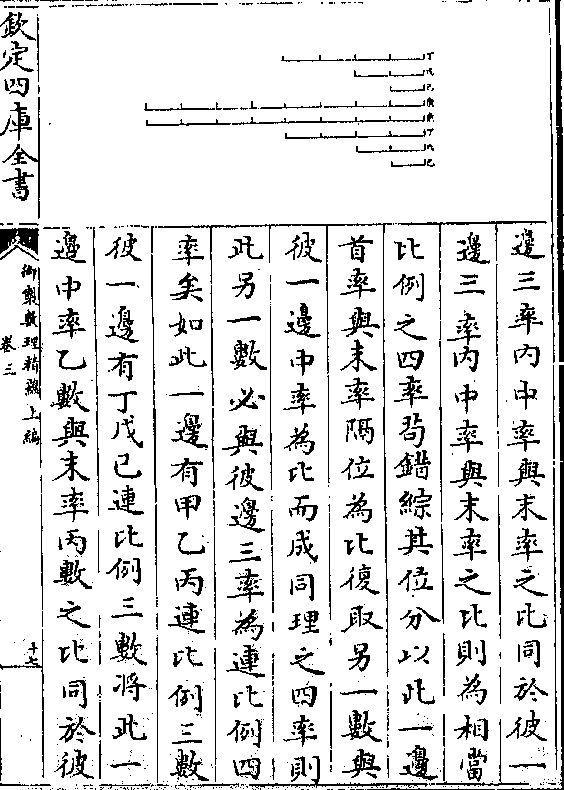 邊三率内中率與末率之比同於彼一
邊三率内中率與末率之比則為相當
比例之四率茍錯綜其位分以此一邊
首率與末率隔位為比復取另一數與
彼一邊中率為比而成同理之四率則
此另一數必與彼邊三率為連比例四
率矣如此一邊有甲乙丙連比例三數
彼一邊有丁戊己連比例三數將此一
邊中率乙數與末率丙數之比同於彼
丁
戊
己
丁
戊
己
欽定四庫全書
御製數理精藴上編
卷三
十七